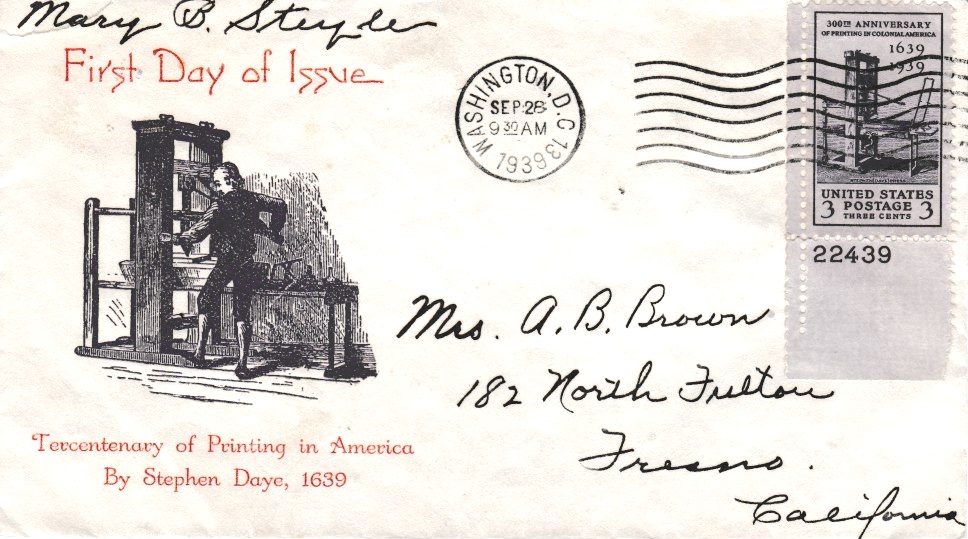 Mary B. Steyle
First Day of Issue
WASHINGTON, D.C. 13
SEP 28
9 30 AM
1939
300TH ANNIVERSARY
OF PRINTING IN COLONIAL AMERICA
1639
1939
UNITED STATES
POSTAGE
3 THREE CENTS 3
22439
Mrs. A. B. Brown
182 North Fulton
Fresno.
California
Tercentenary of Printing in America
By Stephen Daye, 1639